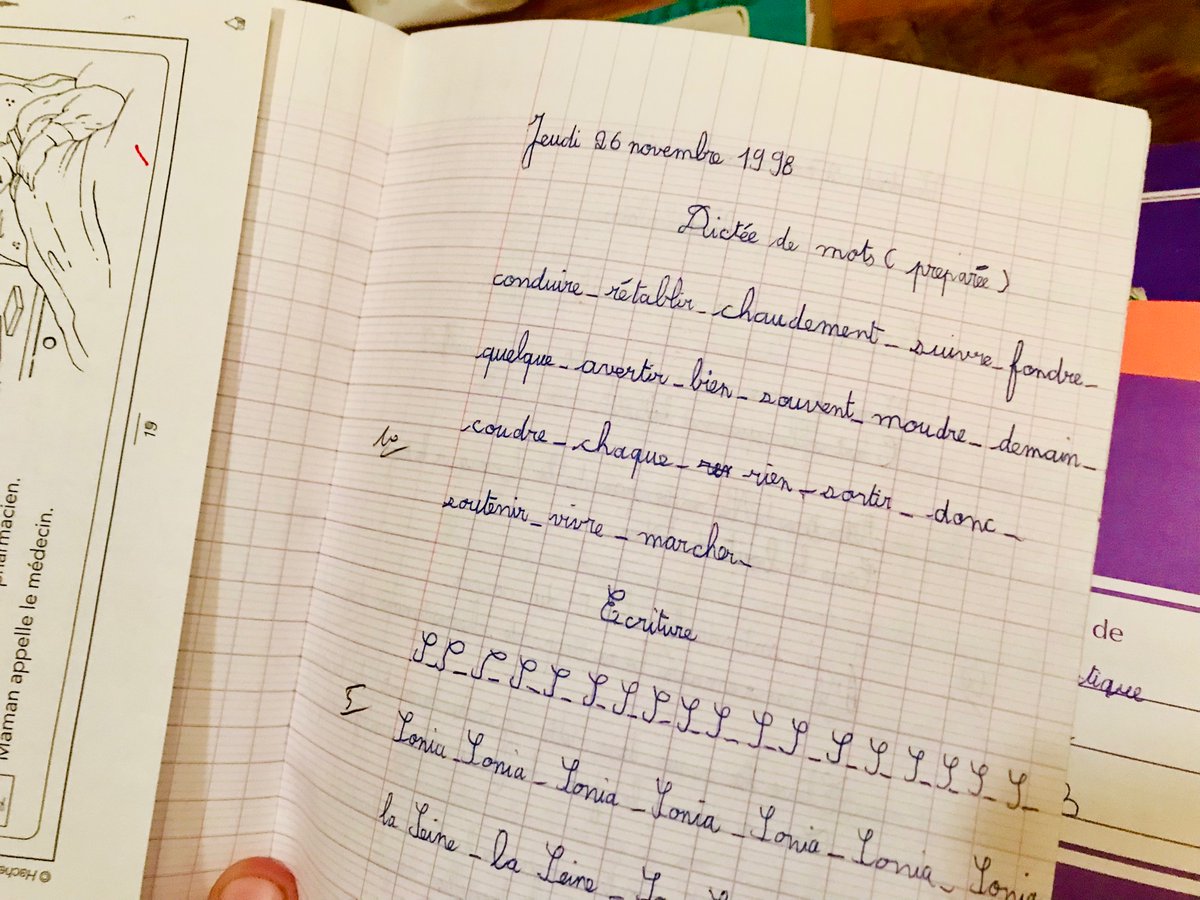 Jeudi 26 novembre 1998
Dictée de mots ( préparée )
conduire _ rétablir _ chaudement _ suivre _ fondre _
quelque _ avertir _ bien _ souvent _ moudre _ demain _
coudre _ chaque _ rien _ sortir _ donc _
soutenir _ vivre _ marcher _
Ecriture
S S _ S _ S _ S _ S _ S _ S _ S _ S _ S _ S _ S _ S _ S _ S _ S _ S _
Sonia _ Sonia _ Sonia _ Sonia _ Sonia _ Sonia _ Sonia
la Seine _ la Seine _
19
pharmacien.
Maman appelle le médecin.
© Hache
de
tique